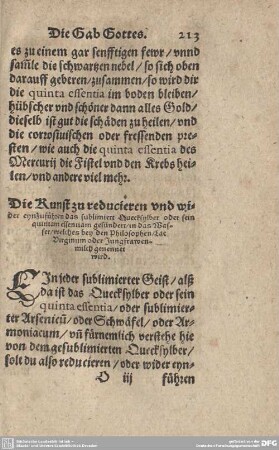 Die Gab Gottes. 213
es zu einem gar senfftigen fewr / vnnd
sam̃le die schwartzen nebel / so sich oben
darauff geberen / zusammen / so wird dir
die quinta essentia im boden bleiben /
hübscher vnd schöner dann alles Gold /
dieselb ist gut die schäden zu heilen / vnd
die corrosiuischen oder fressenden pre-
sten / wie auch die quinta essentia des
Mercurij die Fistel vnd den Krebs hei-
len / vnd andere viel mehr.
Die Kunst zu reducieren vnd wi-
der eynzuführen das sublimiert Quecksylber oder sein
quintam essentiam gesündert / in das Was-
ser / welches bey den Philosophen / Lac
Virginum oder Jungfrawen-
milch genennet
wird.
EIn jeder sublimierter Geist / alß
da ist das Quecksylber oder sein
quinta essentia / oder sublimier-
ter Arsenicū / oder Schwäfel / oder Ar-
moniacum / vñ fürnemlich verstehe hie
von dem gesublimierten Quecksylber /
solt du also reducieren / oder wider eyn-
O iij führen